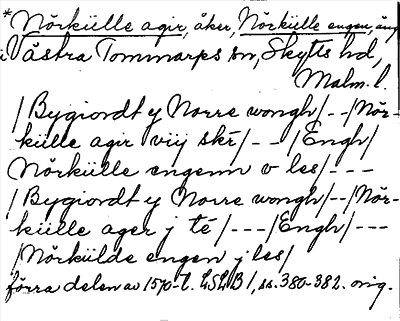 *Nörkülle agir, åker, Nörkülle engen, äng
i Västra Tommarps sn, Skytts hd,
Malm. l.
/Bygiordt y Norre wongh/--/Nör-
külle agir viij skr/--/Engh/
Nörkülle engenn v les/---
/Bygiordt y Norre wongh/--/Nör-
külle ager j té/---/Engh/---
/Nörkülde engen j les/
förra delen av 1570-t. LSLB 1, ss. 380-382. orig.